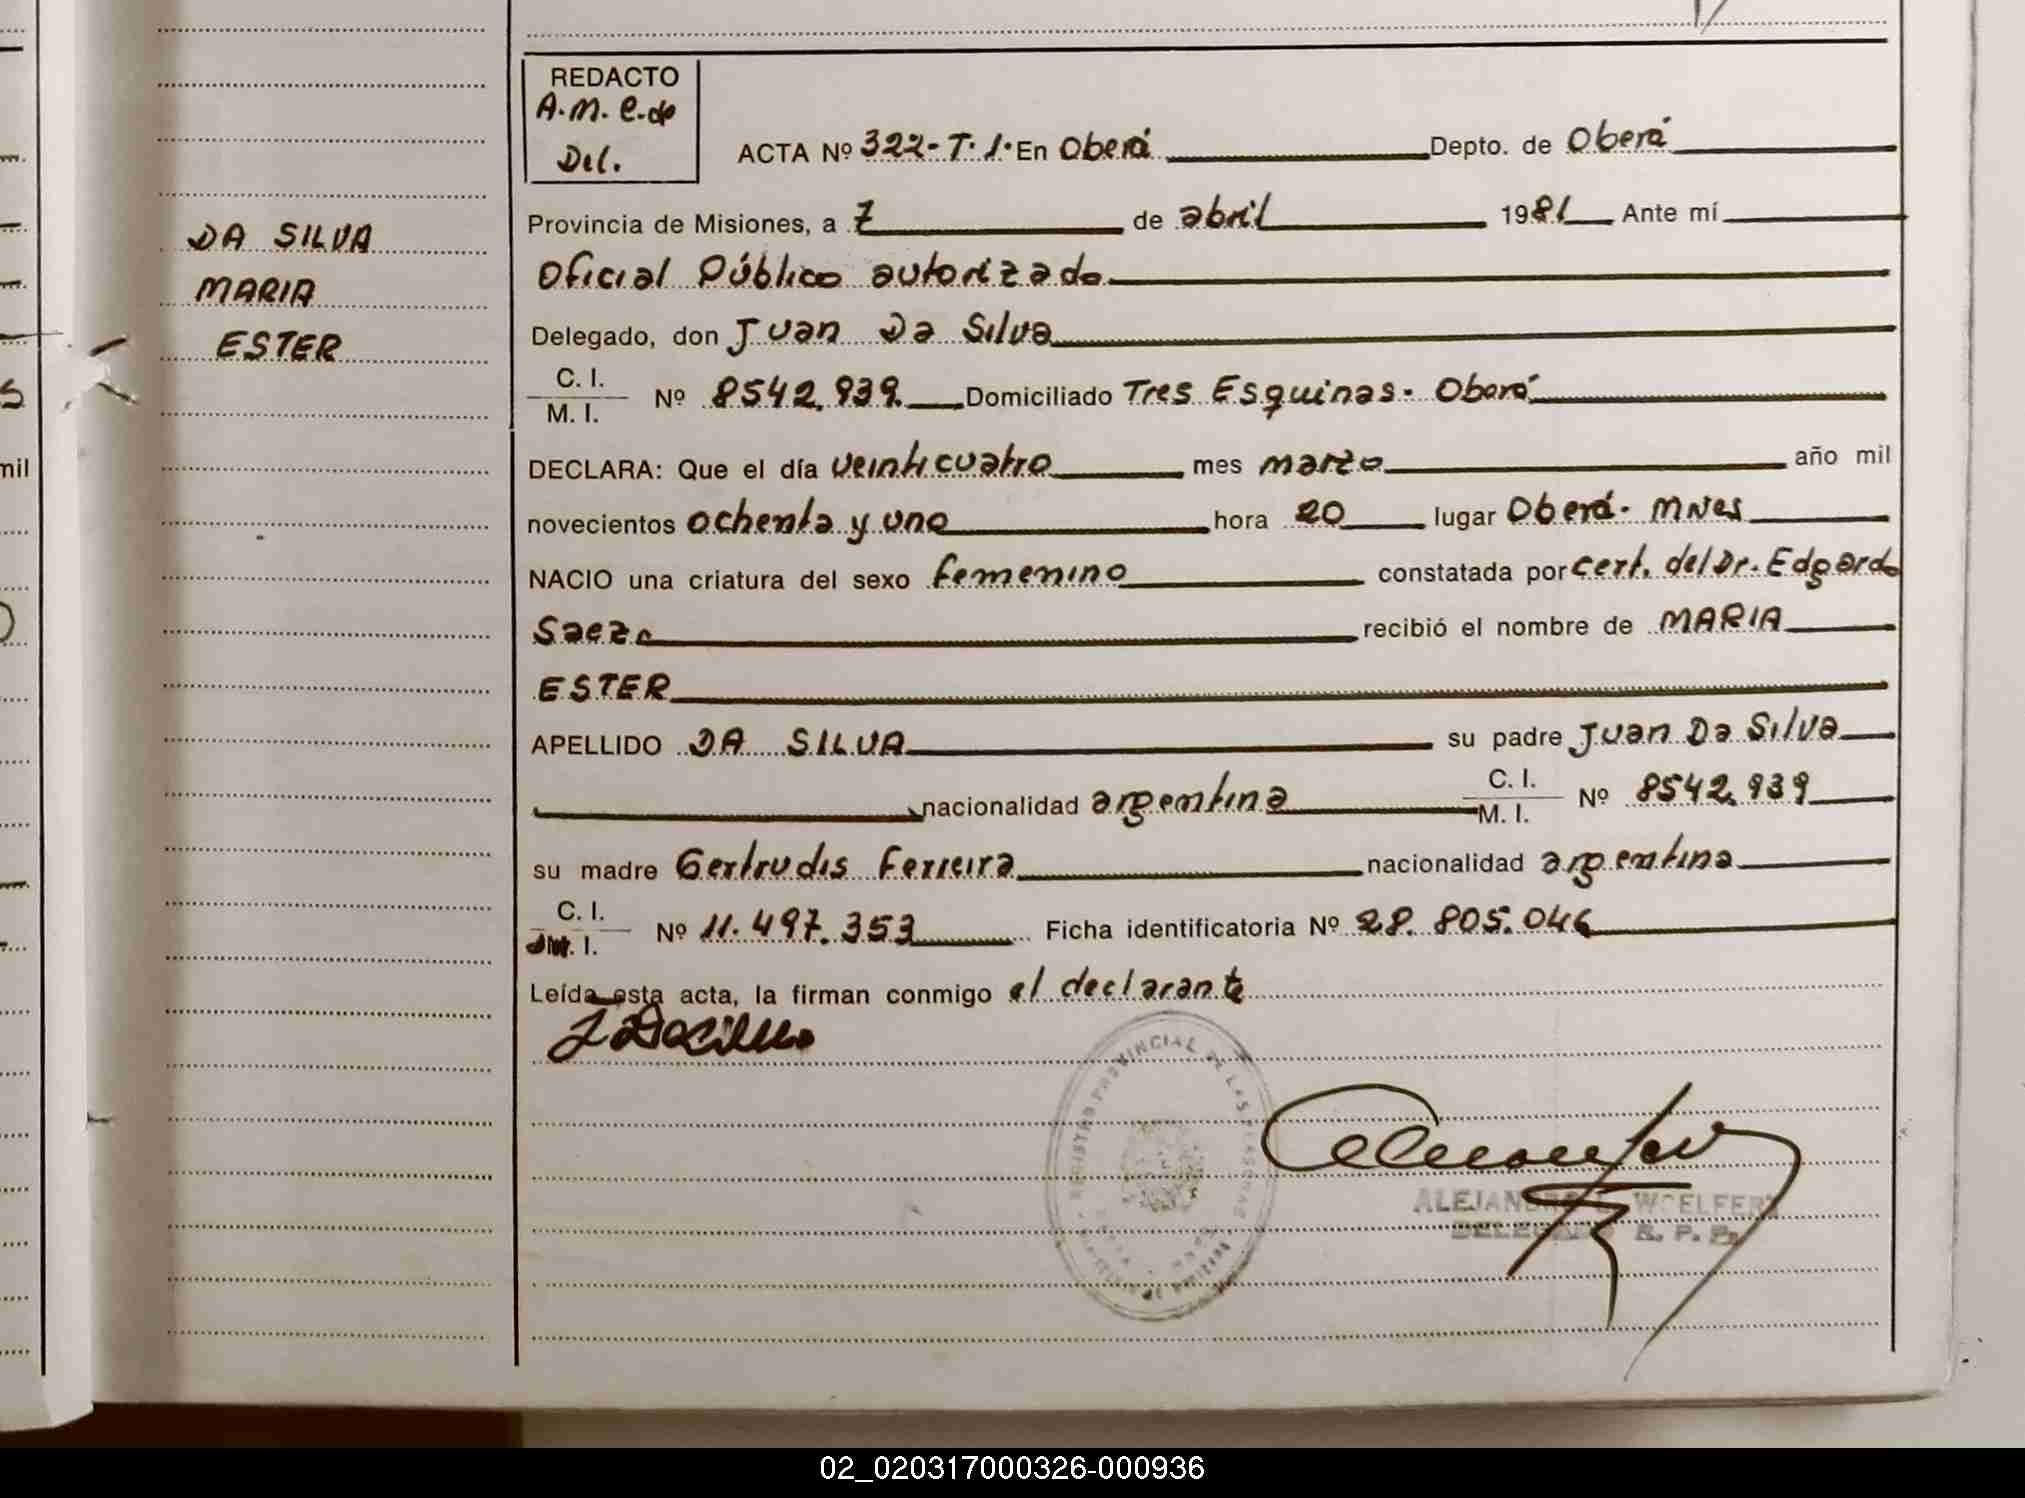 REDACTO
A.M.C.de
Del.
ACTA Nº 322-T.1. En Oberá Depto. de Oberá
DA SILVA
MARIA
ESTER
Provincia de Misiones, a 7 de abril 1981 Ante mí
Oficial Público autorizado
Delegado, don Juan Da Silva
C. I.
M. I. Nº 8542.939. Domiciliado Tres Esquinas. Oberá
DECLARA: Que el día veinticuatro mes marzo año mil
novecientos ochenta y uno hora 20 lugar Oberá. Mnes
NACIO una criatura del sexo femenino constatada por cert. del Dr. Edgardo
Saez recibió el nombre de MARIA
ESTER
APELLIDO DA SILVA su padre Juan Da Silva
nacionalidad argentina C. I. M. I. Nº 8542.939
su madre Gertrudis Ferreira nacionalidad argentina
C. I.
I. Nº 11.497.353 Ficha identificatoria Nº 28.805.046
Leída esta acta, la firman conmigo el declarante
J Da Silva
REGISTRO PROVINCIAL DE LAS PERSONAS
ALEJANDRO L. WOELFERT
DELEGADO R. P. P.
mil
02_020317000326-000936